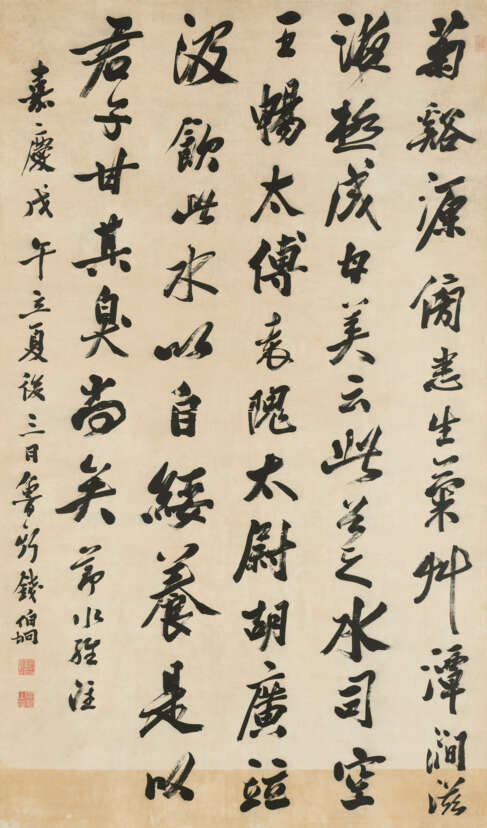 菊谿源傍悉生菊艸潭澗滋
液極成甘美云此谷之水司空
王暢太傅袁隗太尉胡廣竝
汲飲此水以自綏養是以
君子甘其臭尚矣 節水經注
嘉慶戊午立夏後三日魯斯錢伯坰